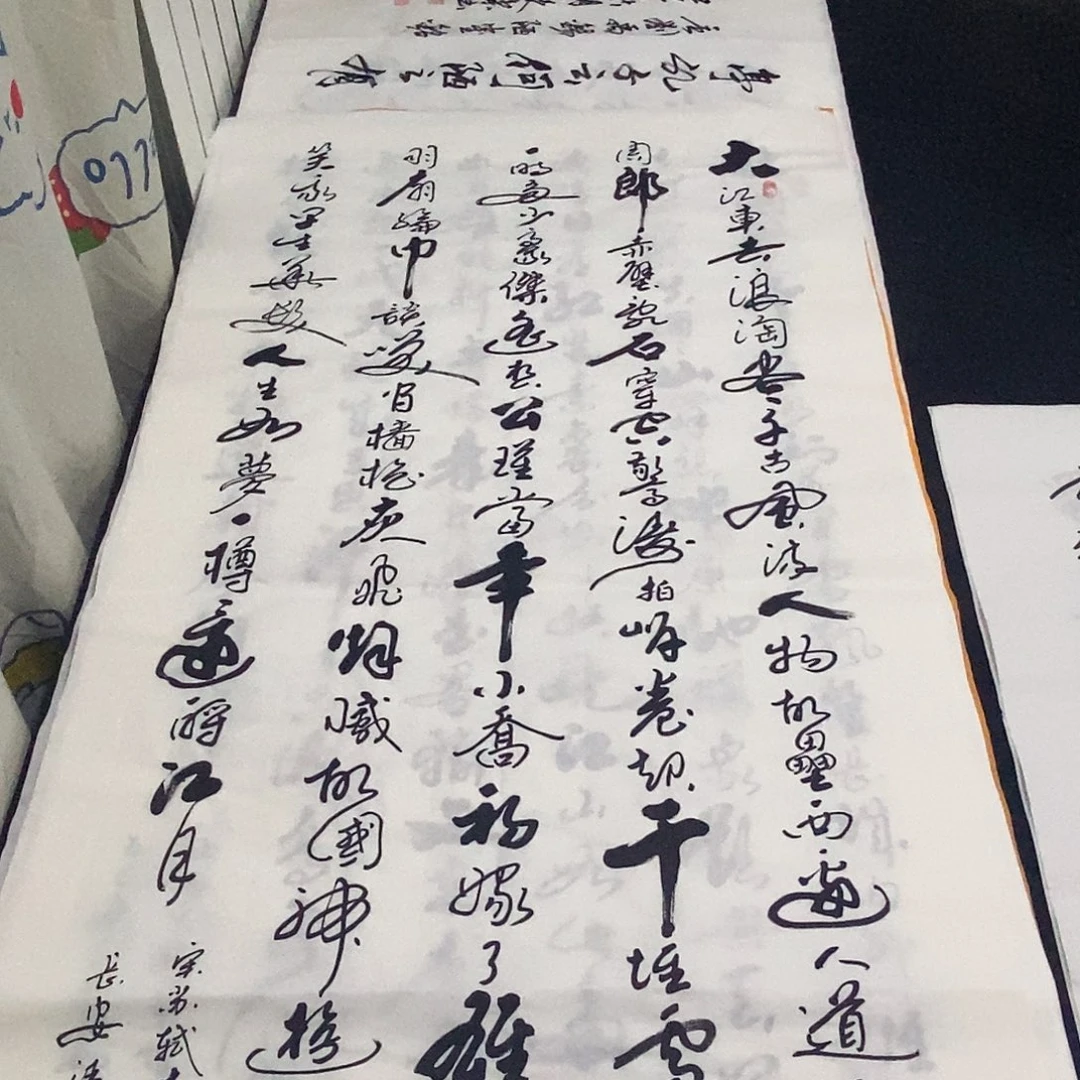 大江東去浪淘盡千古風流人物故壘西邊人道
周郎赤壁亂石穿空驚濤拍岸卷起千堆雪
一時多少豪傑遙想公瑾當年小喬初嫁了雄
羽扇綸巾談笑間檣櫓灰飛煙滅故國神遊
笑我早生華髮人生如夢一樽還酹江月
宋蘇軾
長安